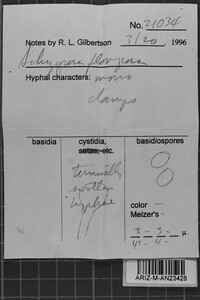 No. 21034
Notes by R. L. Gilbertson 3/20, 1996
Schizopora flavipora
Hyphal characters: mono
clamps
basidia cystidia, basidiospores
setae, etc.
terminally
swollen
hyphae
color –
Melzer's –
3 – 3 –
4 – 4 –
ARIZ-M-AN23428